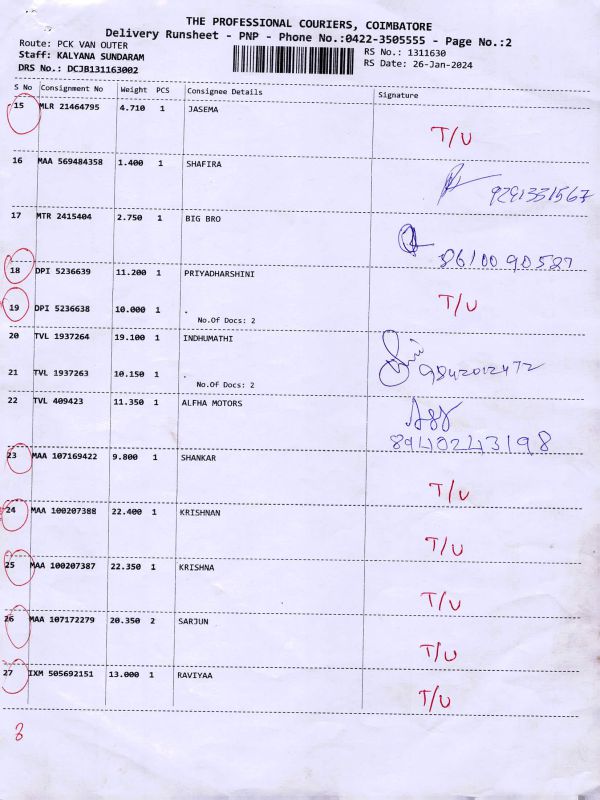 THE PROFESSIONAL COURIERS, COIMBATORE
Delivery Runsheet - PNP - Phone No.:0422-3505555 - Page No.:2
Route: PCK VAN OUTER
RS No.: 1311630
Staff: KALYANA SUNDARAM
RS Date: 26-Jan-2024
DRS No.: DCJB131163002
S No Consignment No Weight PCS Consignee Details Signature
15 MLR 21464795 4.710 1 JASEMA
T/U
16 MAA 569484358 1.400 1 SHAFIRA
9291331567
17 MTR 2415404 2.750 1 BIG BRO
8610090587
18 DPI 5236639 11.200 1 PRIYADHARSHINI
T/U
19 DPI 5236638 10.000 1 .
No.Of Docs: 2
20 TVL 1937264 19.100 1 INDHUMATHI
21 TVL 1937263 10.150 1 .
9842012472
No.Of Docs: 2
22 TVL 409423 11.350 1 ALFHA MOTORS
8940243198
23 MAA 107169422 9.800 1 SHANKAR
T/U
24 MAA 100207388 22.400 1 KRISHNAN
T/U
25 MAA 100207387 22.350 1 KRISHNA
T/U
26 MAA 107172279 20.350 2 SARJUN
T/U
27 IXM 505692151 13.000 1 RAVIYAA
T/U